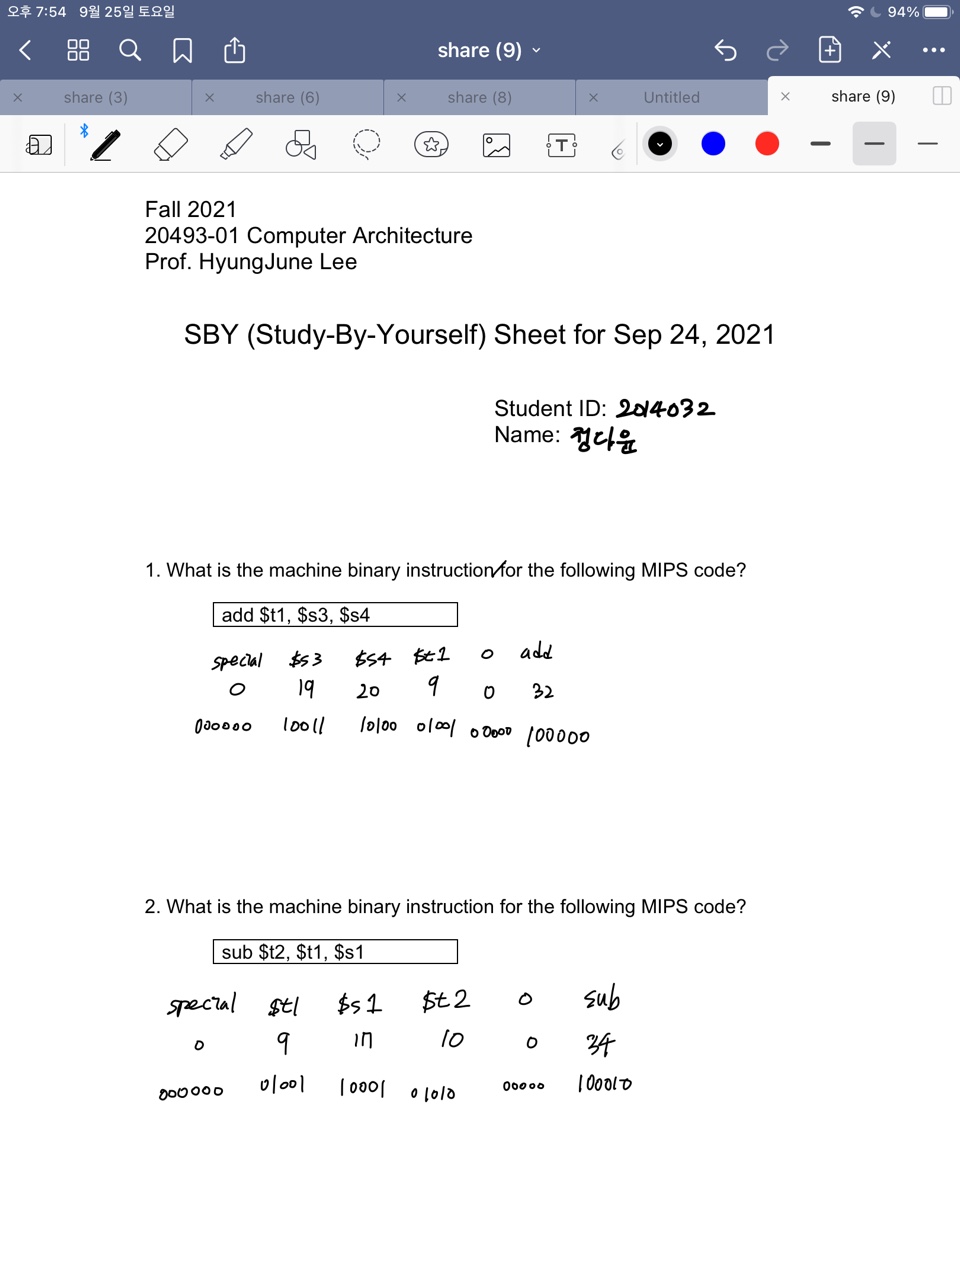 오후 7:54 9월 25일 토요일 94%
share (9)
share (3) share (6) share (8) Untitled share (9)
Fall 2021
20493-01 Computer Architecture
Prof. HyungJune Lee
SBY (Study-By-Yourself) Sheet for Sep 24, 2021
Student ID: 2014032
Name: 정다윤
1. What is the machine binary instruction for the following MIPS code?
add $t1, $s3, $s4
special $s3 $s4 $t1 0 add
0 19 20 9 0 32
000000 10011 10100 01001 00000 100000
2. What is the machine binary instruction for the following MIPS code?
sub $t2, $t1, $s1
special $t1 $s1 $t2 0 sub
0 9 17 10 0 34
000000 01001 10001 01010 00000 100010